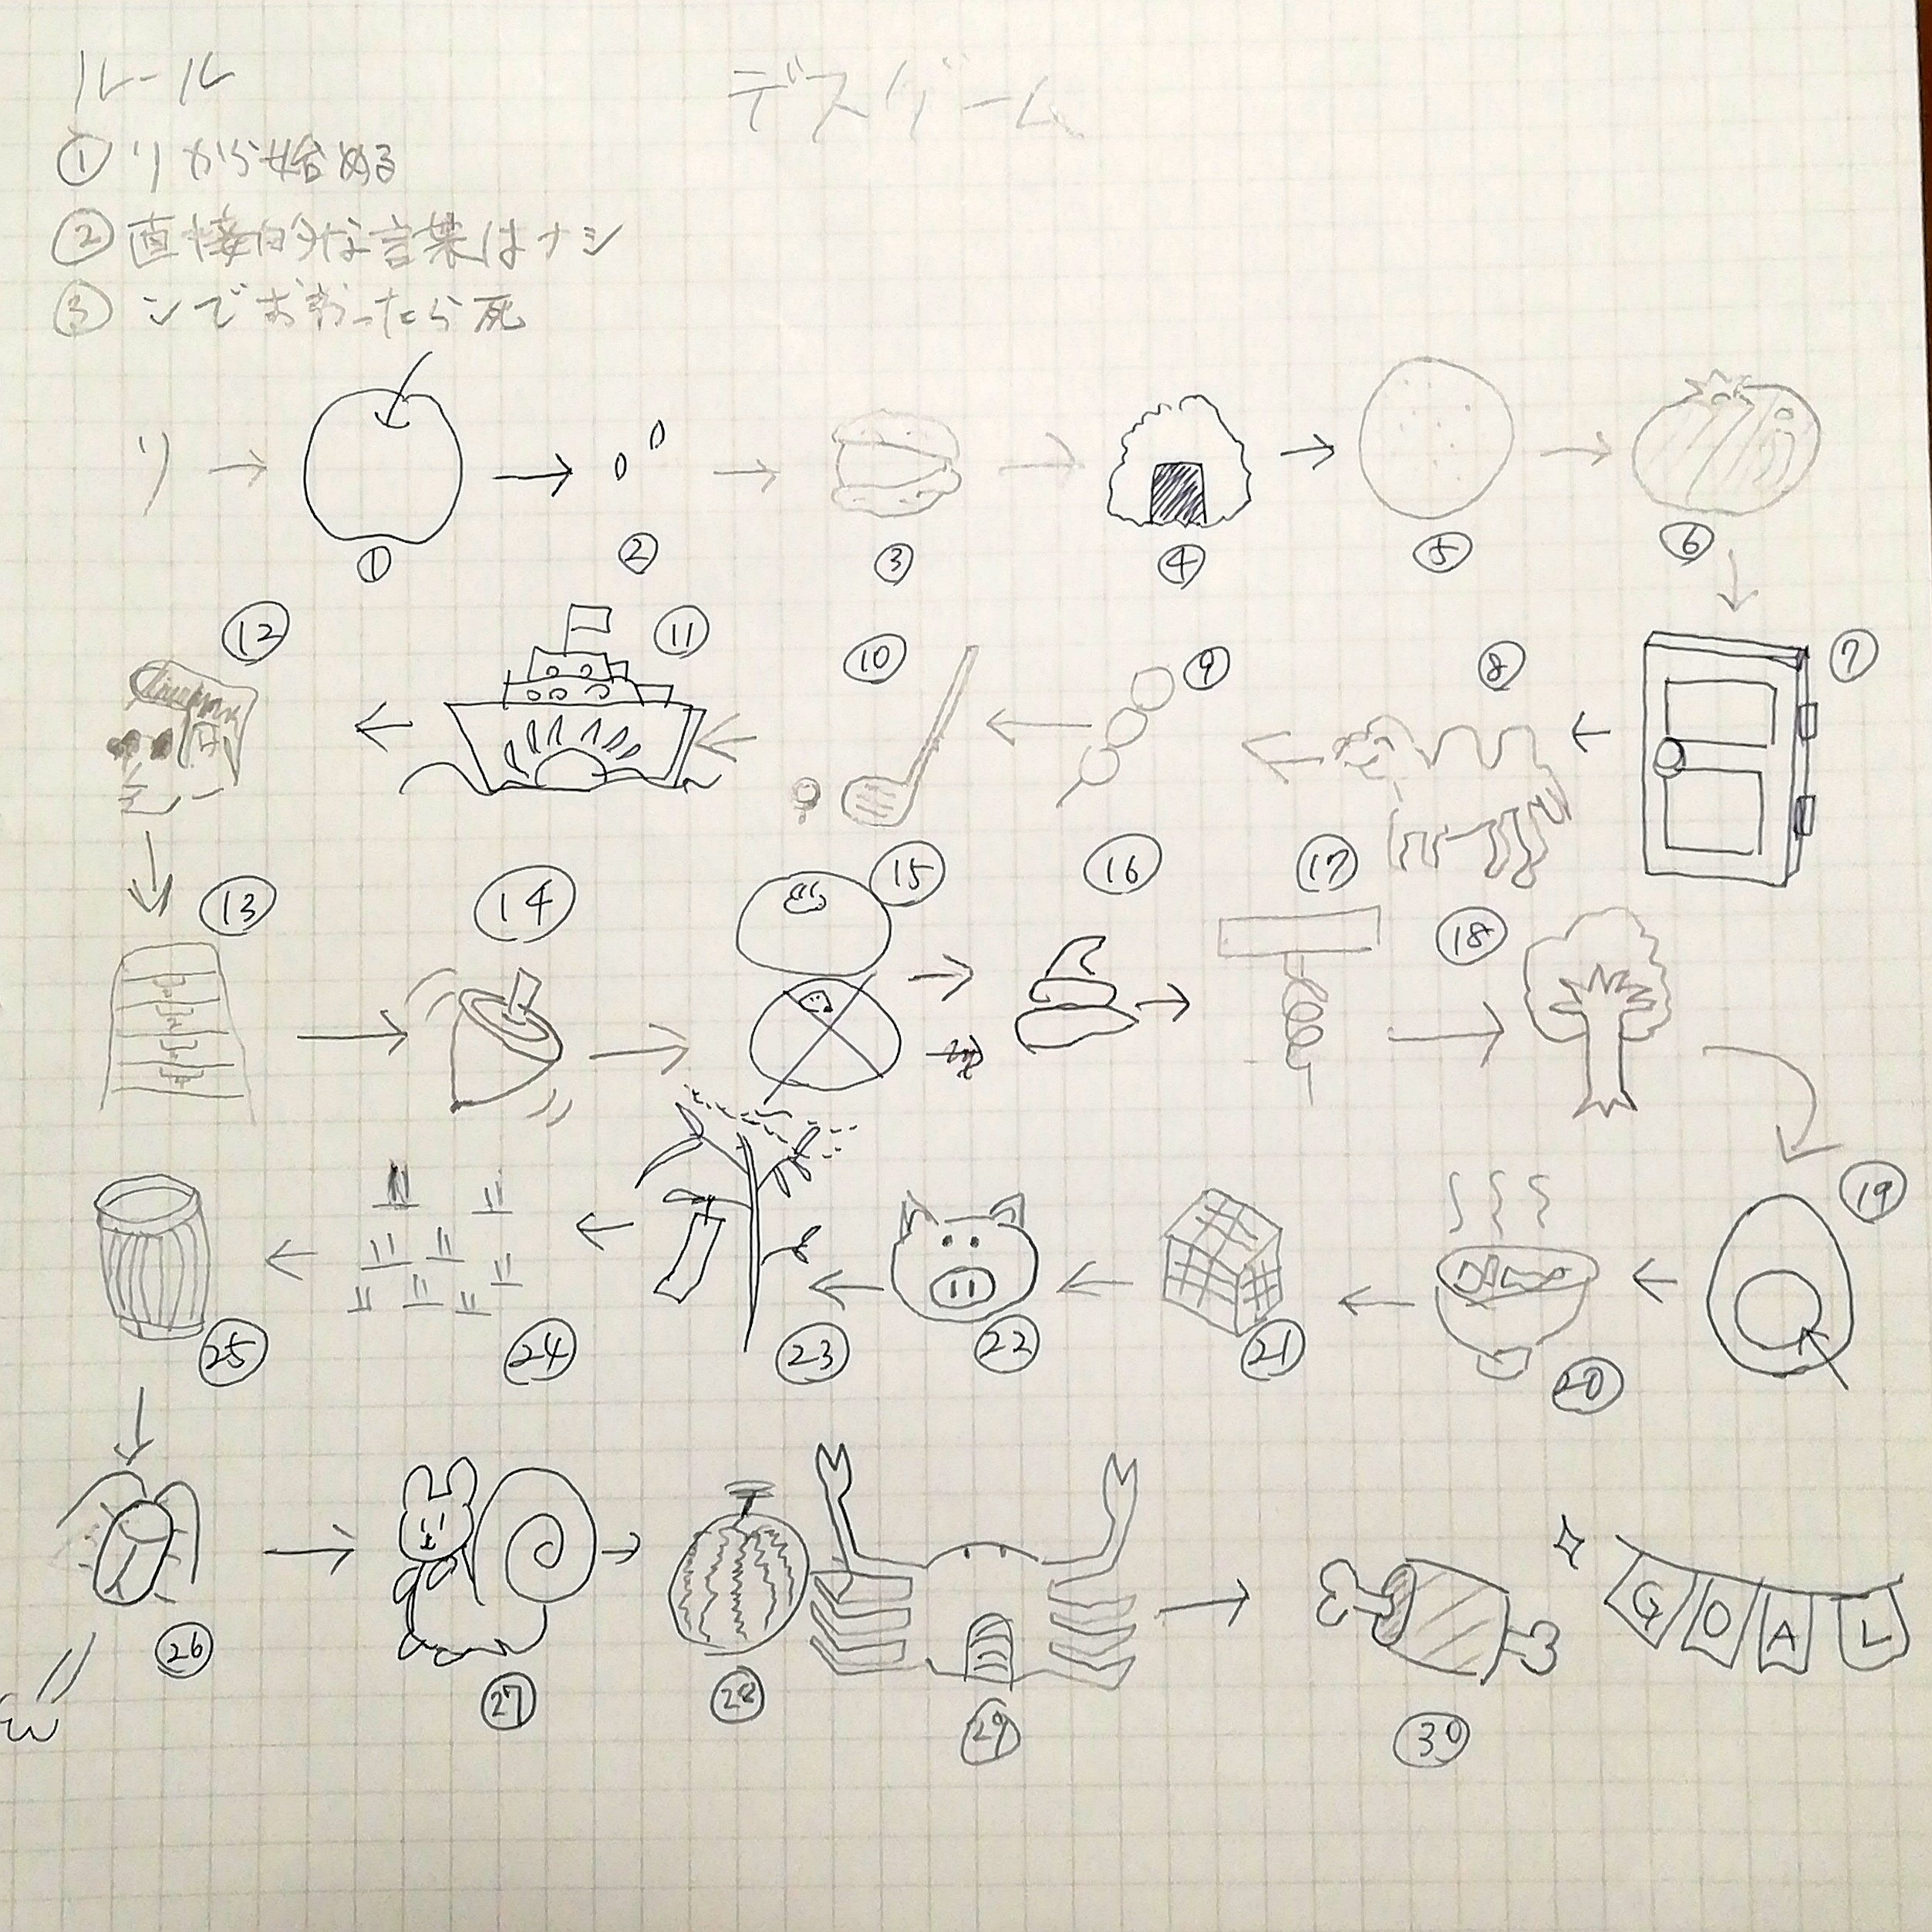 ルール
デスゲーム
① リから始める
② 直接的な言葉はナシ
③ ンでおわったら死
リ
① ② ③ ④ ⑤ ⑥
⑫ ⑪ ⑩ ⑨ ⑧ ⑦
⑬ ⑭ ⑮ ⑯ ⑰ ⑱
㉕ ㉔ ㉓ ㉒ ㉑ ⑳ ⑲
㉖ ㉗ ㉘ ㉙ ㉚
GOAL